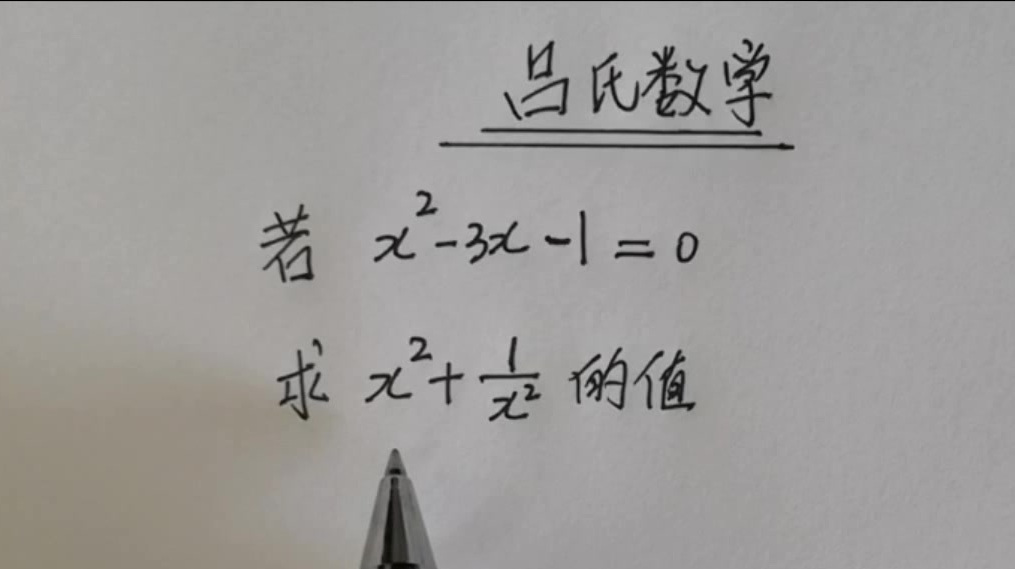 吕氏数学
若 x²-3x-1=0
求 x²+1/x² 的值